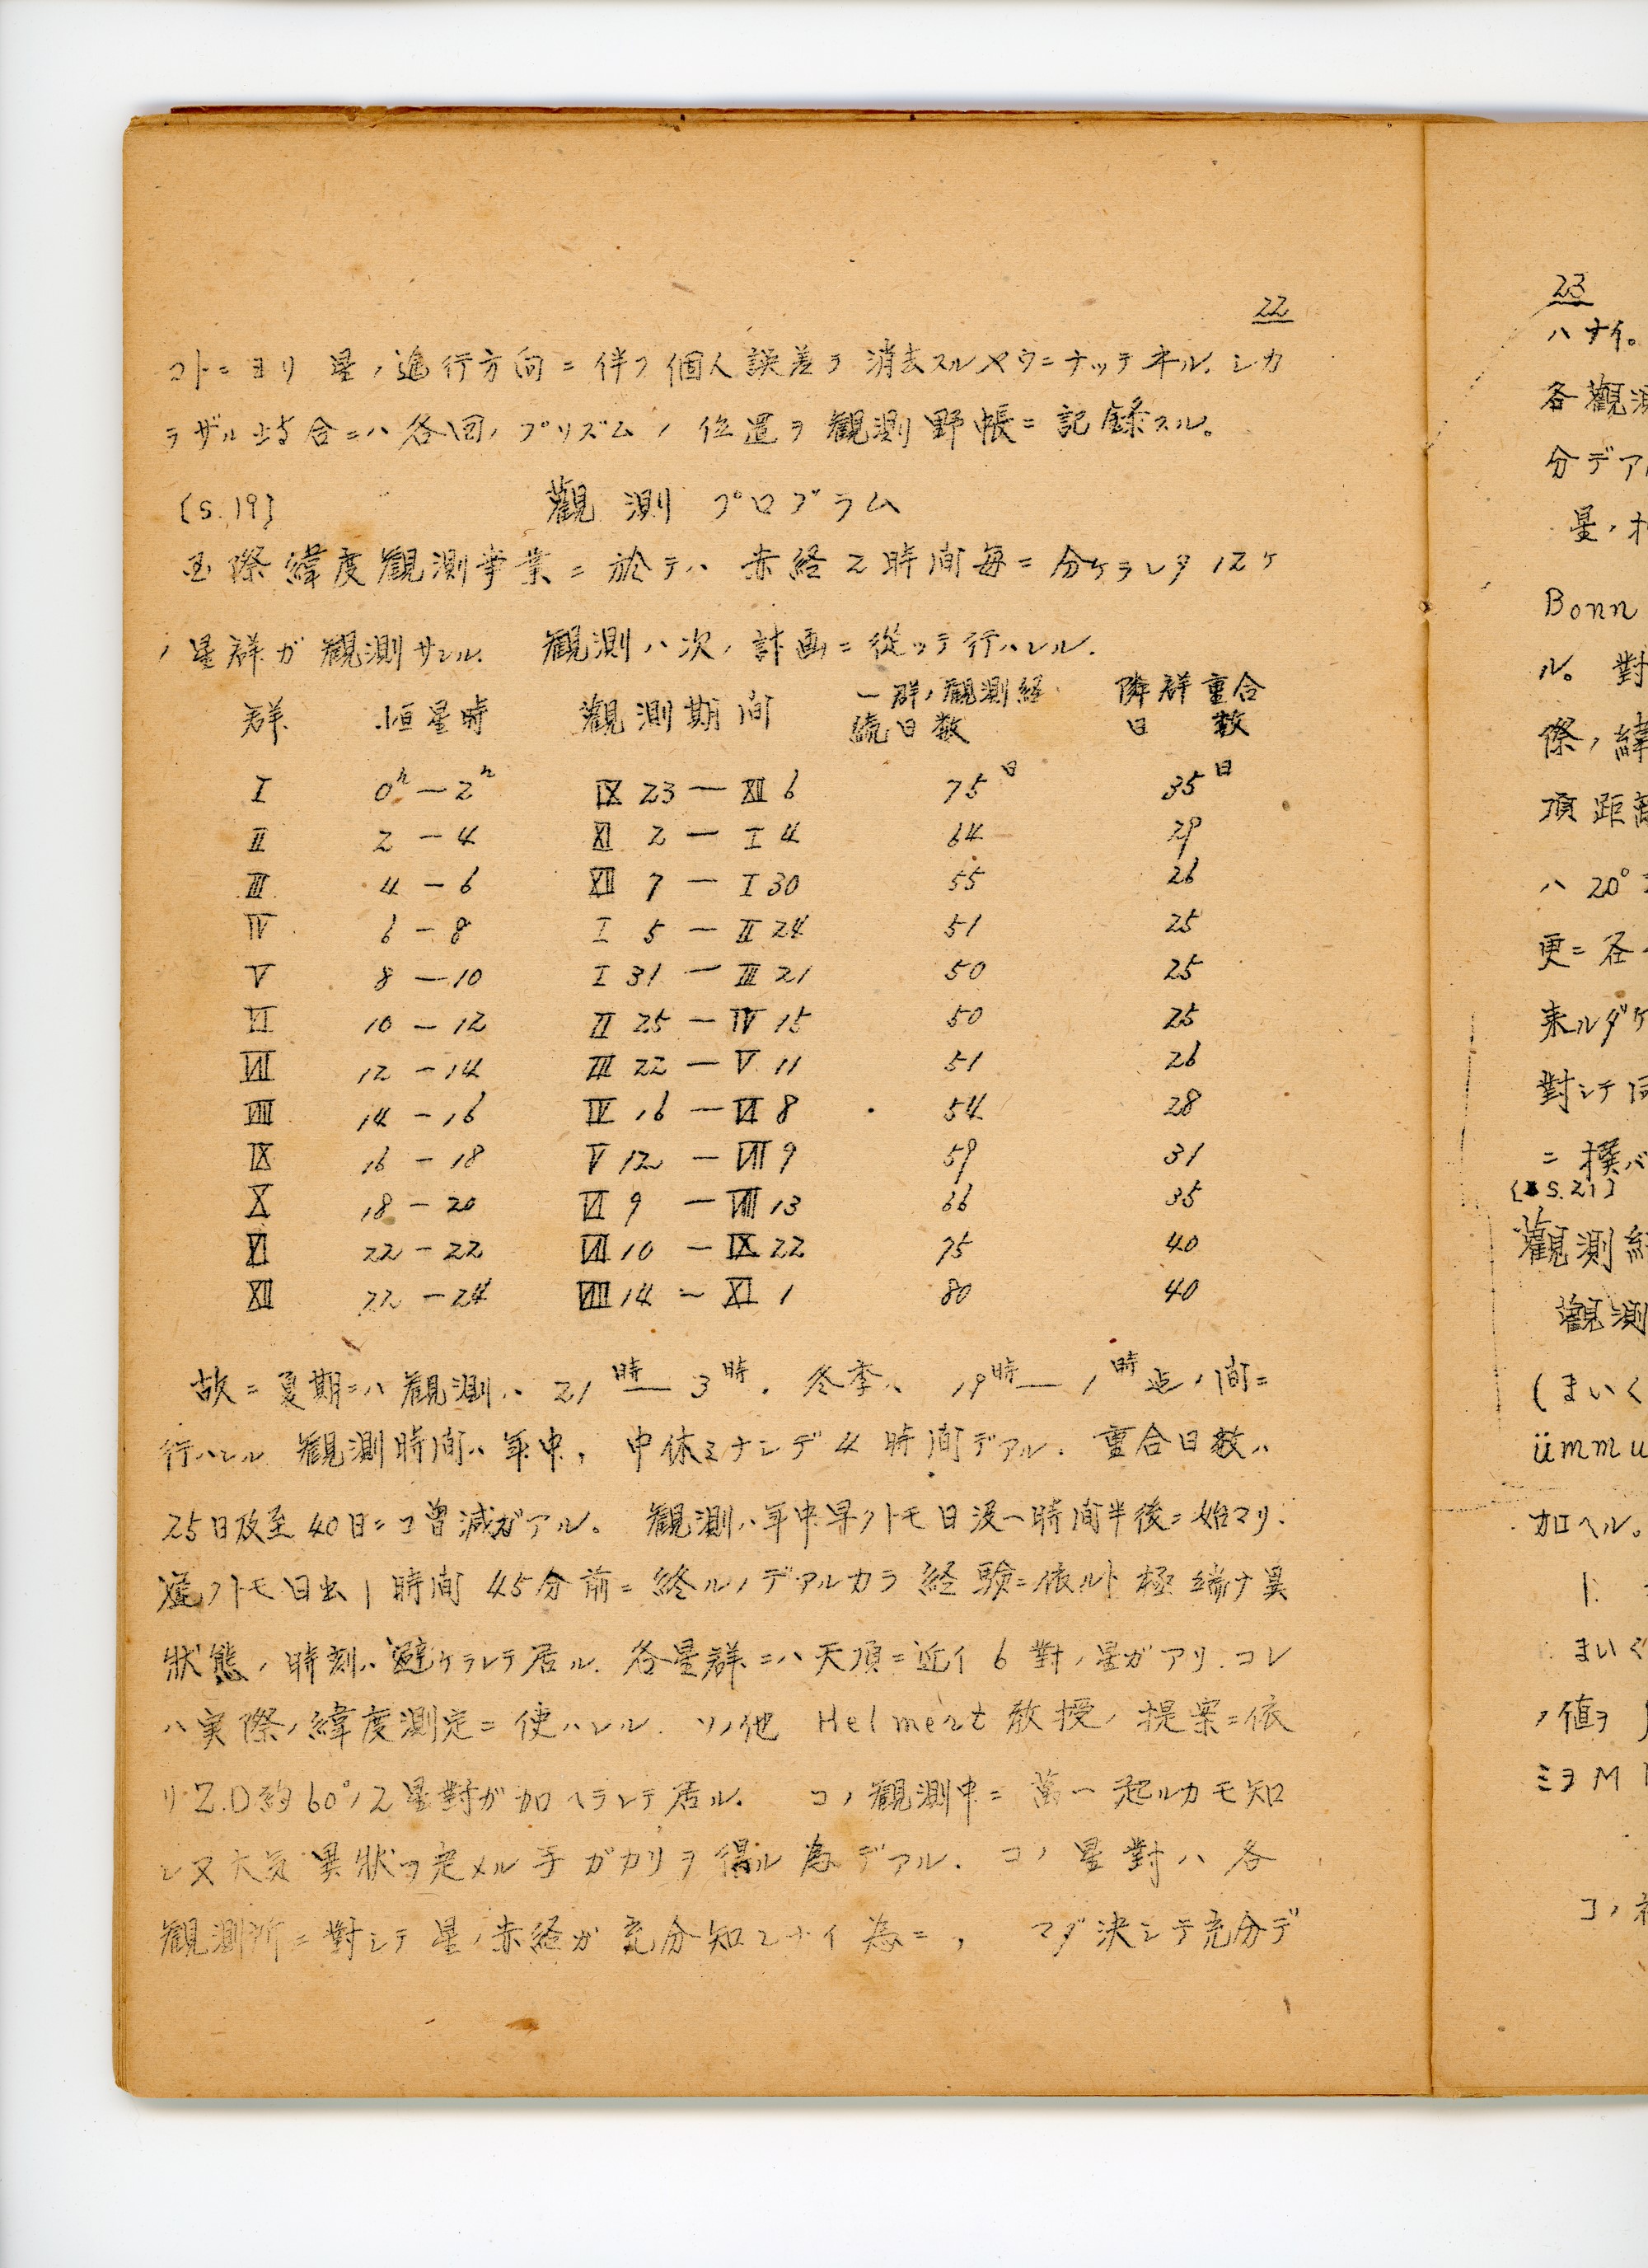 22
コトニヨリ 星ノ進行方向ニ伴フ個人誤差ヲ 消去スルヤウニナッテヰル. シカ
ラザル場合ニハ各回ノプリズムノ 位置ヲ観測野帳ニ記録スル。
[S.19] 観測 プログラム
国際緯度観測事業ニ於テハ 赤経2時間毎ニ分ケラレタ12ケ
ノ星群ガ観測サレル. 観測ハ次ノ計画ニ従ッテ行ハレル.
群 恒星時 観測期間 一群ノ観測経続日数 隣群重合日数
I 0h—2h IX 23 — XII 6 75日 35日
II 2 — 4 XI 2 — I 4 64 29
III 4 — 6 XII 7 — I 30 55 26
IV 6 — 8 I 5 — II 24 51 25
V 8 — 10 I 31 — III 21 50 25
VI 10 — 12 II 25 — IV 15 50 25
VII 12 — 14 III 22 — V 11 51 26
VIII 14 — 16 IV 16 — VI 8 54 28
IX 16 — 18 V 12 — VII 9 59 31
X 18 — 20 VI 9 — VIII 13 66 35
XI 22 — 22 VII 10 — IX 22 75 40
XII 22 — 24 VIII 14 ~ XI 1 80 40
故ニ夏期ニハ観測ハ 21時— 3時. 冬季ハ 19時— 1時迄ノ間ニ
行ハレル 観測時間ハ年中, 中休ミナシデ4時間デアル. 重合日数ハ
25日及至40日ニコ曽減ガアル。 観測ハ年中早クトモ日没一時間半後ニ始マリ.
遅クトモ日出1時間45分前ニ終ルノデアルカラ経験ニ依ルト極端ナ異
状態ノ時刻ハ避ケラレテ居ル. 各星群ニハ天頂ニ近イ6対ノ星ガアリ. コレ
ハ実際ノ緯度測定ニ使ハレル. ソノ他 Helmert教授ノ提案ニ依
リZ.D約60°ノ2星對ガ加ヘラレテ居ル. コノ観測中ニ萬一起ルカモ知
レヌ大気異状ヲ定メル手ガカリヲ得ル為デアル. コノ星對ハ各
観測所ニ對シテ星ノ赤経ガ充分知レナイ為ニ, マダ決シテ充分デ
23
ハナイ。
各觀測
分デア
星ノ
Bonn
ル。對
際ノ緯
頂距離
ハ 20°
更ニ各
来ルダケ
對シテ同
ニ撰バ
[S.21]
觀測
觀測
(まいく
ümmu
加ヘル。
ト
まいく
ノ値ヲ
ミヲM
コノ